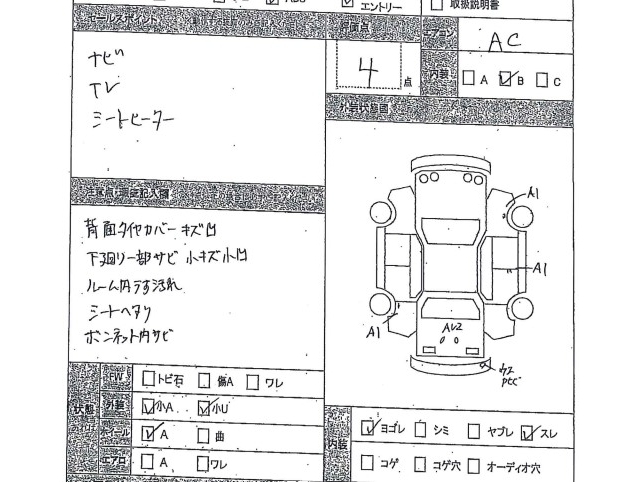 エントリー
取扱説明書
セールスポイント
評価点
エアコン
AC
ナビ
TV
シートヒーター
4点
内装
□A ☑B □C
外装状態図
背面タイヤカバーキズ凹
下廻り一部サビ 小キズ小凹
ルーム内うす汚れ
シートヘタリ
ボンネット内サビ
A1
A1
A1
AU2
状態
FW
□トビ石 □傷A □ワレ
外装
☑小A ☑小U
ホイール
☑A □曲
エアロ
□A □ワレ
内装
☑ヨゴレ □シミ □ヤブレ ☑スレ
□コゲ □コゲ穴 □オーディオ穴